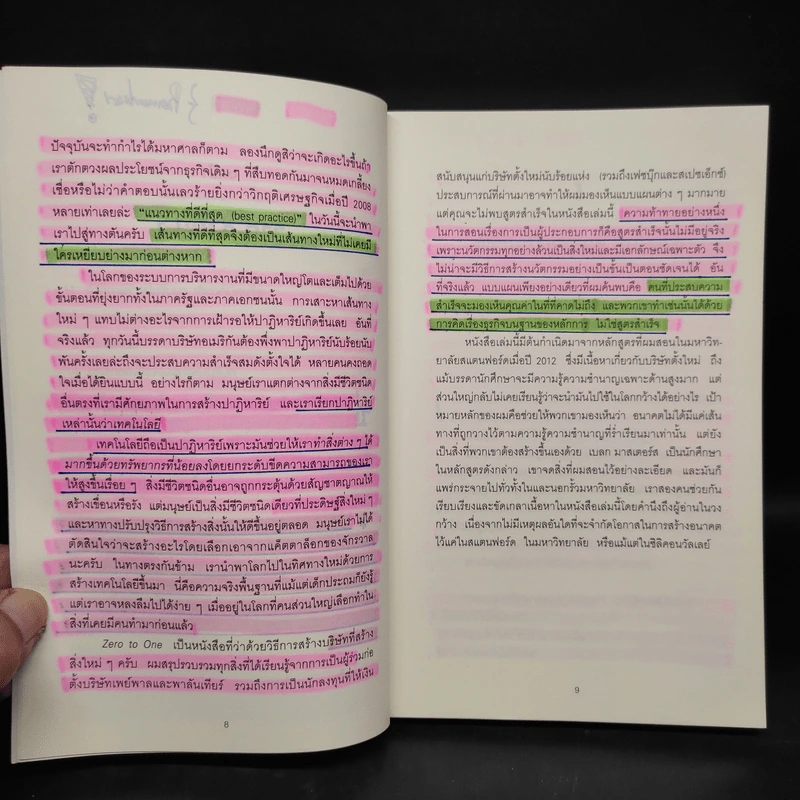 ปัจจุบันจะทำกำไรได้มหาศาลก็ตาม ลองนึกดูสิว่าจะเกิดอะไรขึ้นถ้า
เราตักตวงผลประโยชน์จากธุรกิจเดิม ๆ ที่สืบทอดกันมาจนหมดเกลี้ยง
เชื่อหรือไม่ว่าคำตอบนั้นเลวร้ายยิ่งกว่าวิกฤติเศรษฐกิจเมื่อปี 2008
หลายเท่าเลยล่ะ “แนวทางที่ดีที่สุด (best practice)” ในวันนี้จะนำพา
เราไปสู่ทางตันครับ เส้นทางที่ดีที่สุดจึงต้องเป็นเส้นทางใหม่ที่ไม่เคยมี
ใครเหยียบย่างมาก่อนต่างหาก
ในโลกของระบบการบริหารงานที่มีขนาดใหญ่โตและเต็มไปด้วย
ขั้นตอนที่ยุ่งยากทั้งในภาครัฐและภาคเอกชนนั้น การเสาะหาเส้นทาง
ใหม่ ๆ แทบไม่ต่างอะไรจากการเฝ้ารอให้ปาฏิหาริย์เกิดขึ้นเลย อันที่
จริงแล้ว ทุกวันนี้บรรดาบริษัทอเมริกันต้องพึ่งพาปาฏิหาริย์นับร้อยนับ
พันครั้งเลยล่ะถึงจะประสบความสำเร็จสมดังตั้งใจได้ หลายคนคงถอด
ใจเมื่อได้ยินแบบนี้ อย่างไรก็ตาม มนุษย์เราแตกต่างจากสิ่งมีชีวิตชนิด
อื่นตรงที่เรามีศักยภาพในการสร้างปาฏิหาริย์ และเราเรียกปาฏิหาริย์
เหล่านั้นว่าเทคโนโลยี
เทคโนโลยีถือเป็นปาฏิหาริย์เพราะมันช่วยให้เราทำสิ่งต่าง ๆ ได้
มากขึ้นด้วยทรัพยากรที่น้อยลงโดยยกระดับขีดความสามารถของเรา
ให้สูงขึ้นเรื่อย ๆ สิ่งมีชีวิตชนิดอื่นอาจถูกกระตุ้นด้วยสัญชาตญาณให้
สร้างเขื่อนหรือรัง แต่มนุษย์เป็นสิ่งมีชีวิตชนิดเดียวที่ประดิษฐ์สิ่งใหม่ ๆ
และหาทางปรับปรุงวิธีการสร้างสิ่งนั้นให้ดีขึ้นอยู่ตลอด มนุษย์เราไม่ได้
ตัดสินใจว่าจะสร้างอะไรโดยเลือกเอาจากแค็ตตาล็อกของจักรวาล
นะครับ ในทางตรงกันข้าม เรานำพาโลกไปในทิศทางใหม่ด้วยการ
สร้างเทคโนโลยีขึ้นมา นี่คือความจริงพื้นฐานที่แม้แต่เด็กประถมก็ยังรู้
แต่เราอาจหลงลืมไปได้ง่าย ๆ เมื่ออยู่ในโลกที่คนส่วนใหญ่เลือกทำใน
สิ่งที่เคยมีคนทำมาก่อนแล้ว
Zero to One เป็นหนังสือที่ว่าด้วยวิธีการสร้างบริษัทที่สร้าง
สิ่งใหม่ ๆ ครับ ผมสรุปรวบรวมทุกสิ่งที่ได้เรียนรู้จากการเป็นผู้ร่วมก่อ
ตั้งบริษัทเพย์พาลและพาลันเทียร์ รวมถึงการเป็นนักลงทุนที่ให้เงิน
8
สนับสนุนแก่บริษัทตั้งใหม่นับร้อยแห่ง (รวมถึงเฟซบุ๊กและสเปซเอ็กซ์)
ประสบการณ์ที่ผ่านมาอาจทำให้ผมมองเห็นแบบแผนต่าง ๆ มากมาย
แต่คุณจะไม่พบสูตรสำเร็จในหนังสือเล่มนี้ ความท้าทายอย่างหนึ่ง
ในการสอนเรื่องการเป็นผู้ประกอบการก็คือสูตรสำเร็จนั้นไม่มีอยู่จริง
เพราะนวัตกรรมทุกอย่างล้วนเป็นสิ่งใหม่และมีเอกลักษณ์เฉพาะตัว จึง
ไม่น่าจะมีวิธีการสร้างนวัตกรรมอย่างเป็นขั้นเป็นตอนชัดเจนได้ อัน
ที่จริงแล้ว แบบแผนเพียงอย่างเดียวที่ผมค้นพบคือ คนที่ประสบความ
สำเร็จจะมองเห็นคุณค่าในที่ที่คาดไม่ถึง และพวกเขาทำเช่นนั้นได้ด้วย
การคิดเรื่องธุรกิจบนฐานของหลักการ ไม่ใช่สูตรสำเร็จ
หนังสือเล่มนี้มีต้นกำเนิดมาจากหลักสูตรที่ผมสอนในมหาวิท-
ยาลัยสแตนฟอร์ดเมื่อปี 2012 ซึ่งมีเนื้อหาเกี่ยวกับบริษัทตั้งใหม่ ถึง
แม้บรรดานักศึกษาจะมีความรู้ความชำนาญเฉพาะด้านสูงมาก แต่
ส่วนใหญ่กลับไม่เคยเรียนรู้ว่าจะนำมันไปใช้ในโลกกว้างได้อย่างไร เป้า
หมายหลักของผมคือช่วยให้พวกเขามองเห็นว่า อนาคตไม่ได้มีแค่เส้น
ทางที่ถูกวางไว้ตามความรู้ความชำนาญที่ร่ำเรียนมาเท่านั้น แต่ยัง
เป็นสิ่งที่พวกเขาต้องสร้างขึ้นเองด้วย เบลก มาสเตอร์ส เป็นนักศึกษา
ในหลักสูตรดังกล่าว เขาจดสิ่งที่ผมสอนไว้อย่างละเอียด และมันก็
แพร่กระจายไปทั่วทั้งในและนอกรั้วมหาวิทยาลัย เราสองคนช่วยกัน
เรียบเรียงและขัดเกลาเนื้อหาในหนังสือเล่มนี้โดยคำนึงถึงผู้อ่านในวง
กว้าง เนื่องจากไม่มีเหตุผลอันใดที่จะจำกัดโอกาสในการสร้างอนาคต
ไว้แค่ในสแตนฟอร์ด ในมหาวิทยาลัย หรือแม้แต่ในซิลิคอนวัลเลย์
9